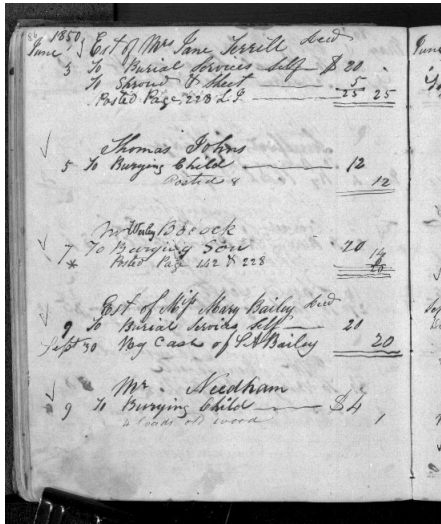 86 1850
June } Est of Mrs Jane Terrill Decd
3 To Burial Services self $20
To Shroud & Sheet 5
Posted Page 228 L J 25 25
Thomas Johns
5 To Burying Child 12
Posted 8 12
Mr Bocock
7 To Burying Son 20
* Posted Page 142 & 228 20
Est of Miss Mary Bailey Decd
9 To Burial Services self 20
Sept 30 By Cash of S A Bailey 20
Mr. Needham
9 To Burying Child $4
loads old wood 1
June